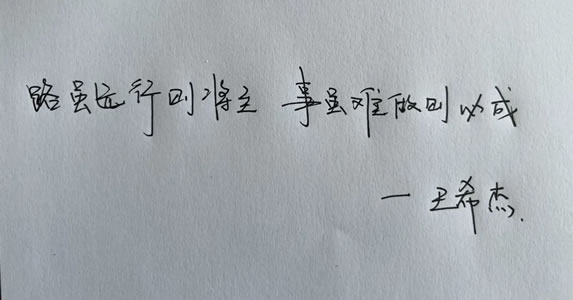 路虽远行则将至 事虽难做则必成
— 王希杰.